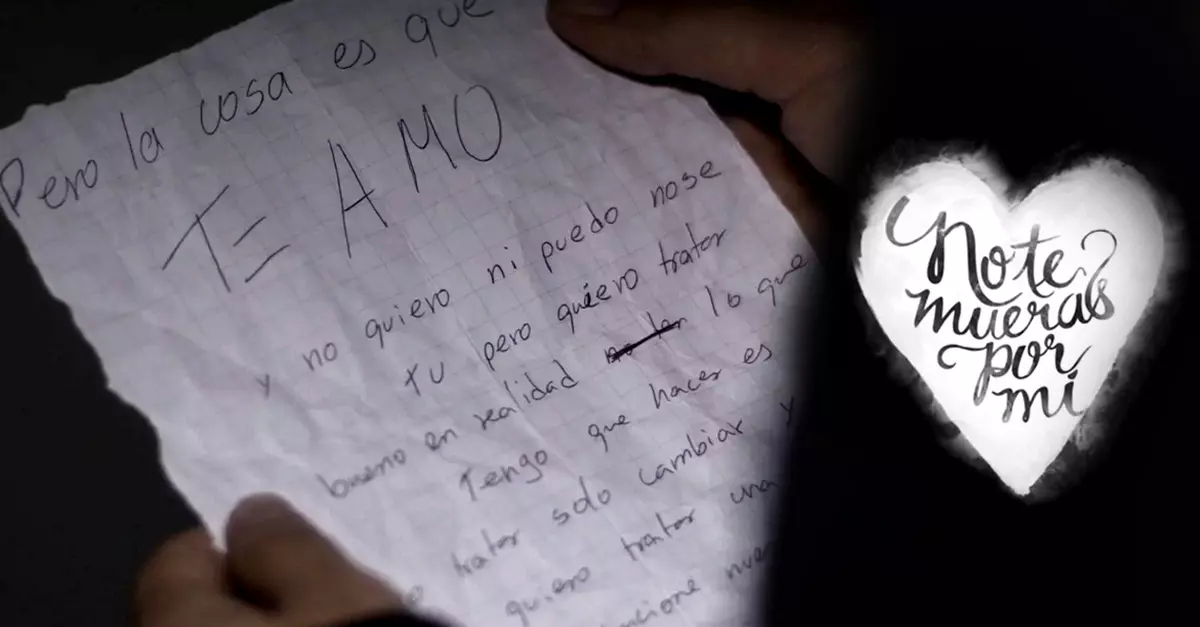 Pero la cosa es que
TE AMO
y no quiero ni puedo nose
tu pero quiero tratar
bueno en realidad lo que
Tengo que hacer es
tratar solo cambiar y
quiero tratar una
No te
mueras
por
mi